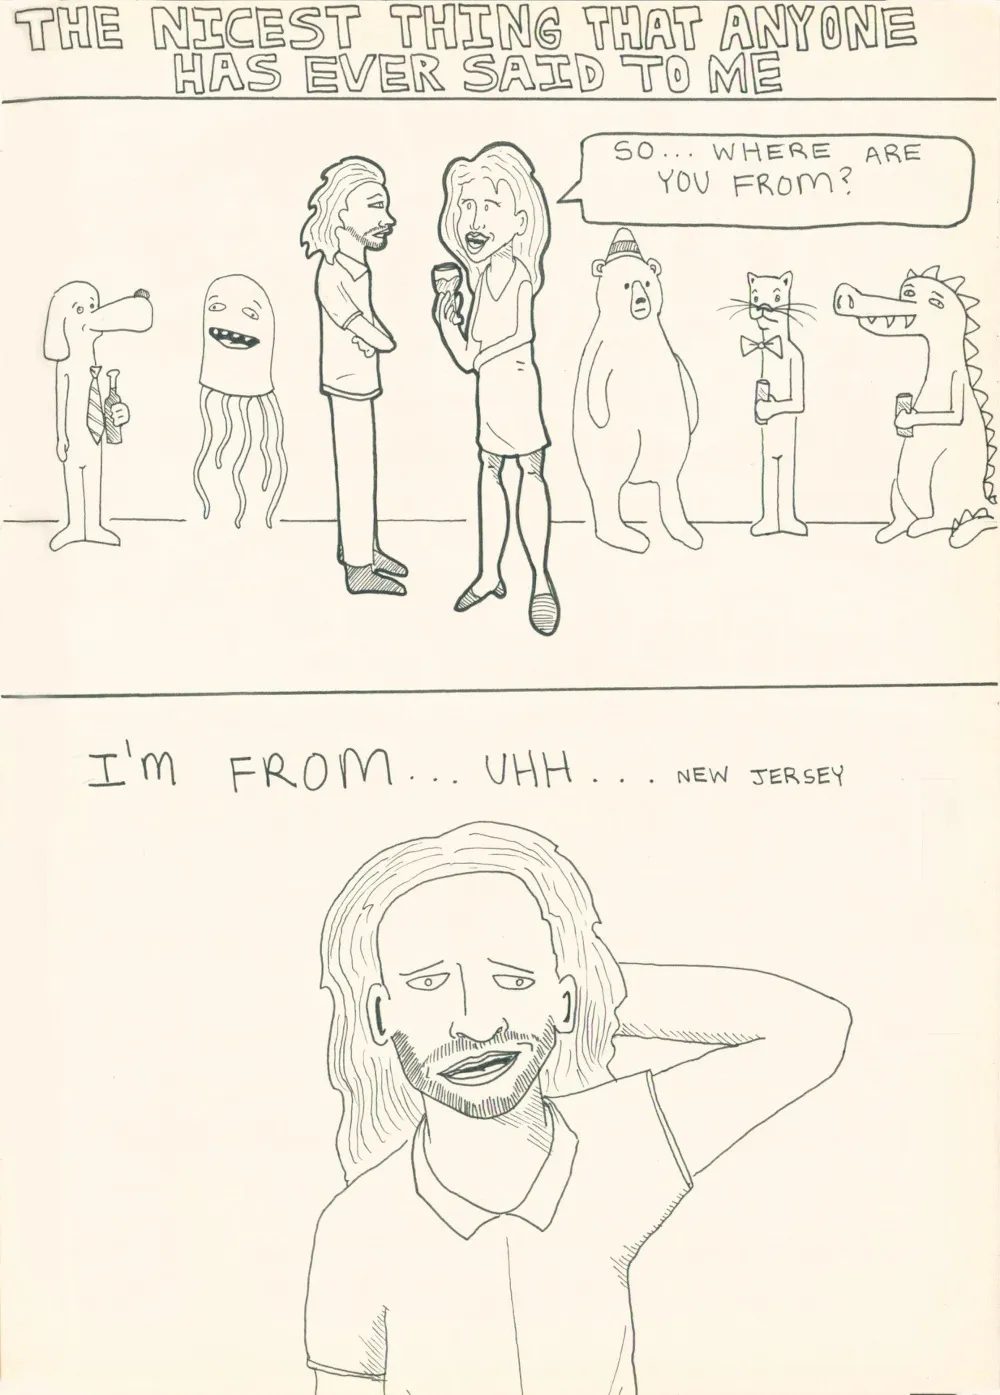 THE NICEST THING THAT ANYONE
HAS EVER SAID TO ME
SO... WHERE ARE
YOU FROM?
I'M FROM... UHH... NEW JERSEY